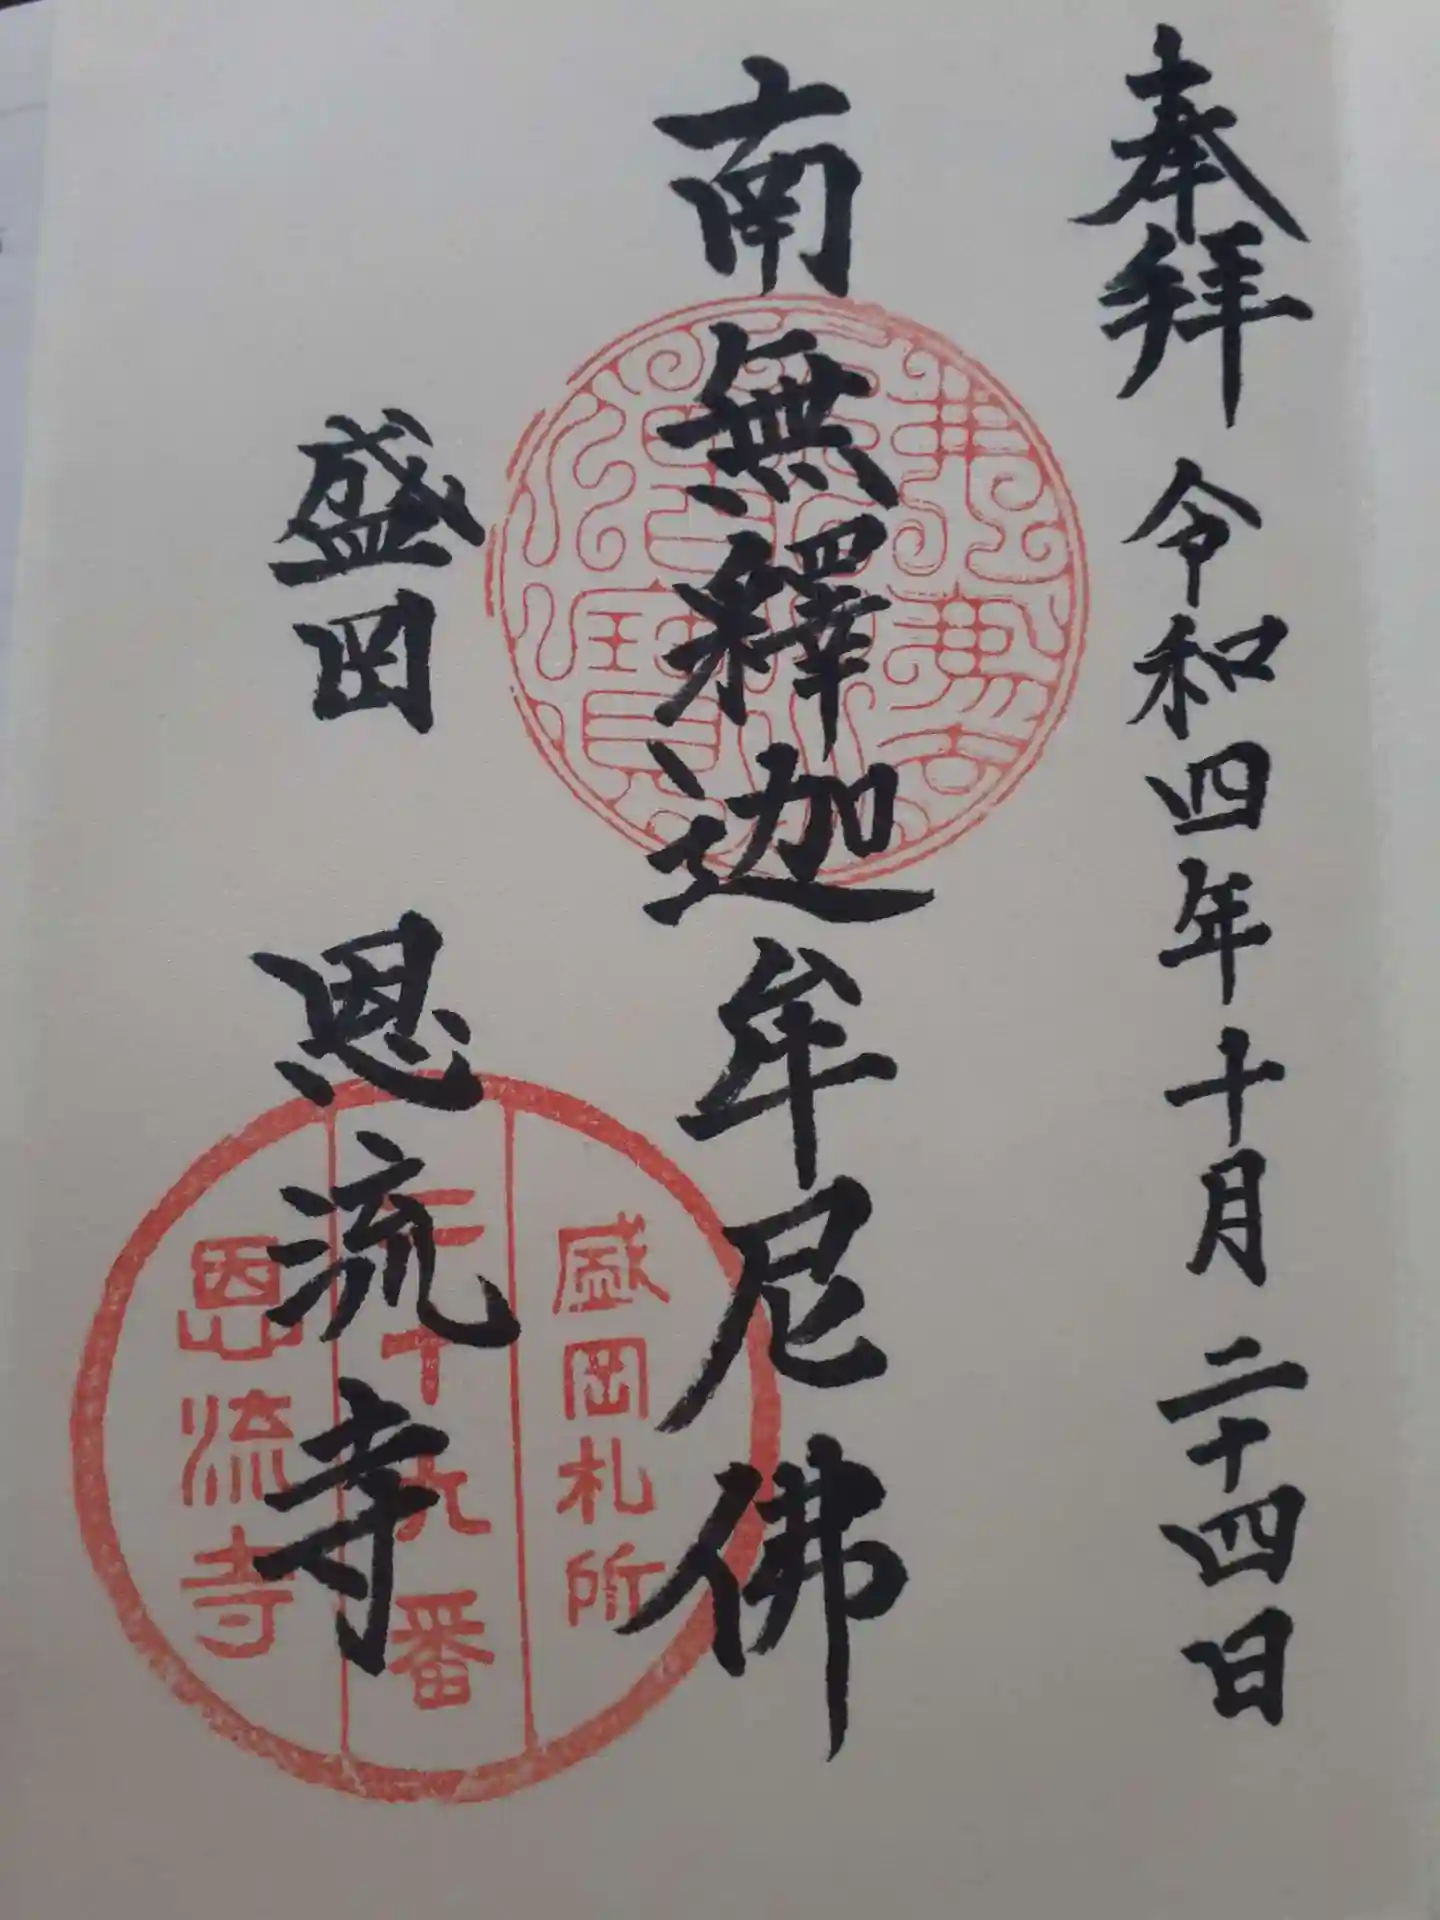 奉拜 令和四年十月二十四日
南無釋迦牟尼佛
盛岡 恩流寺
盛岡札所
二十九番
恩流寺